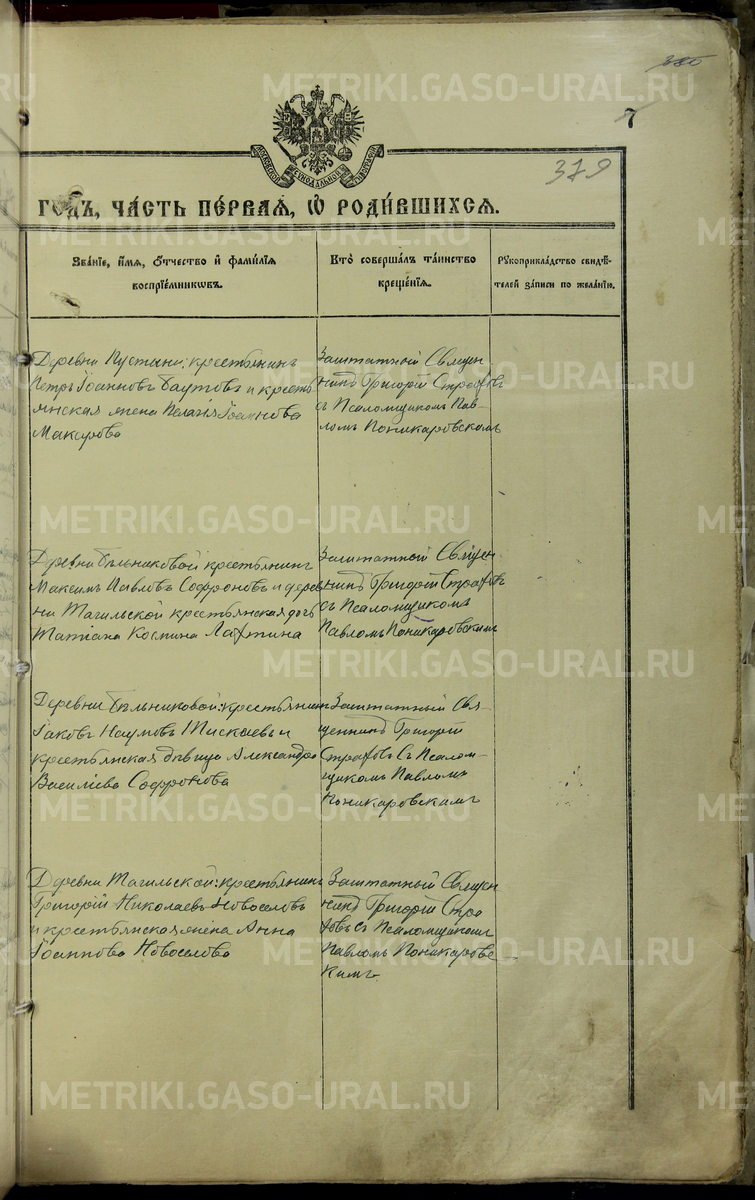 379
7
МОСКОВСКОЙ СУНОДАЛЬНОЙ ТИПОГРАФІИ
ГОДЪ, ЧА́СТЬ ПЕ́РВАѦ, Ѡ҆ РОДИ́ВШИХСѦ.
Зва́нїе, и҆́мѧ, ѻ҆́тчество и҆ фами́лїѧ
воспрїе́мникѡвъ.
Кто̀ соверша́лъ та́инство
креще́нїѧ.
Рꙋкоприкла́дство свидѣ́-
телей за́писи по жела́нїю.
Деревни Пустыни: крестьянинъ
Петръ Іоанновъ Баутовъ и кресть
янская жена Пелагія Іоаннова
Макарова
Заштатный Священ
никъ Григорій Страховъ
съ Псаломщикомъ Пав-
ломъ Поникаровскимъ
Деревни Бѣльниковой крестьянинъ
Максимъ Павловъ Софроновъ и дерев
ни Тагильской крестьянская дочь
Татіана Космина Лаптина
Заштатный Священ
никъ Григорій Страховъ
Съ Псаломщикомъ
Павломъ Поникаровскимъ
Деревни Бѣльниковой: крестьянинъ
Іаковъ Наумовъ Тискаевъ и
крестьянская дѣвица Александра
Василіева Софронова
Заштатный Свя-
щенникъ Григорій
Страховъ Съ Псалом-
щикомъ Павломъ
Поникаровскимъ
Деревни Тагильской: крестьянинъ
Григорій Николаевъ Новоселовъ
и крестьянская жена Анна
Іоаннова Новоселова
Заштатный Священ
никъ Григорій Стра
ховъ Съ Псаломщикомъ
Павломъ Поникаровс
кимъ
METRIKI.GASO-URAL.RU
METRIKI.GASO-URAL.RU
METRIKI.GASO-URAL.RU
METRIKI.GASO-URAL.RU
METRIKI.GASO-URAL.RU
METRIKI.GASO-URAL.RU
METRIKI.GASO-URAL.RU
METRIKI.GASO-URAL.RU